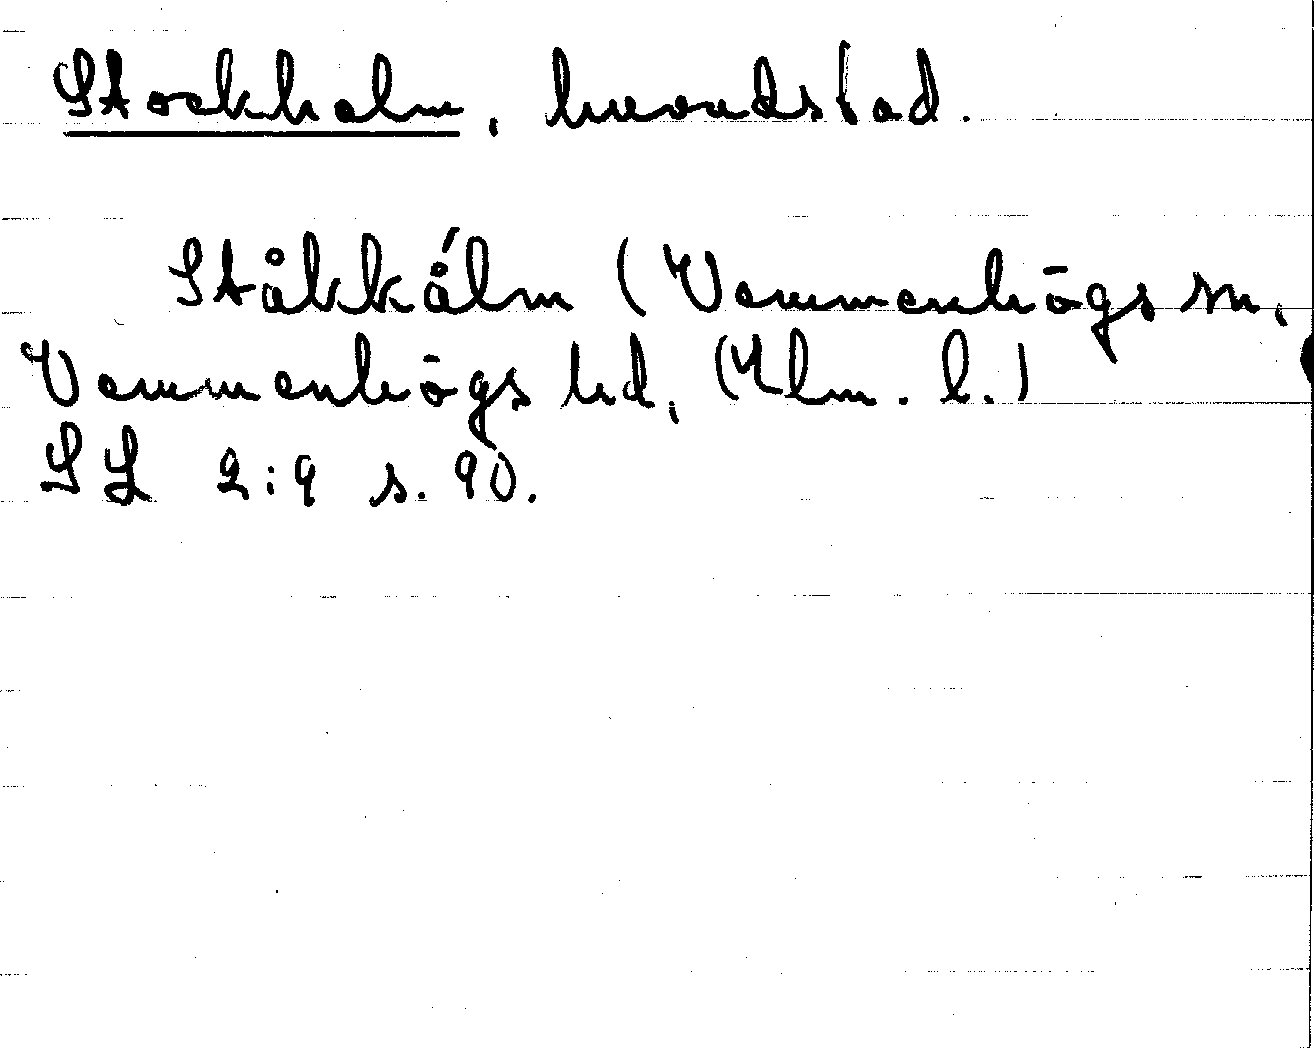 Stockholm, huvudstad.
Ståkkǻlm (Vemmenhögs sn,
Vemmenhögs hd, Mlm. l.)
SL 2:9 s. 90.